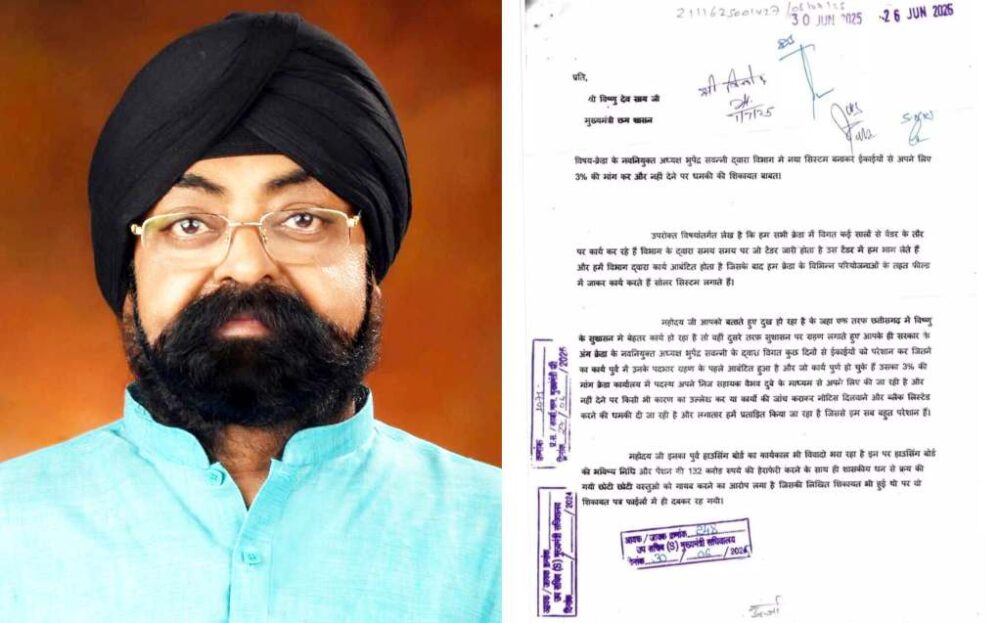 2111625001427/
30 JUN 2025
26 JUN 2025
प्रति,
श्री विष्णु देव साय जी
मुख्यमंत्री छग शासन
1/7/25
विषय-क्रेडा के नवनियुक्त अध्यक्ष भुपेंद्र सवन्नी द्वारा विभाग में नया सिस्टम बनाकर ईकाईयों से अपने लिए
3% की मांग कर और नहीं देने पर धमकी की शिकायत बाबत।
उपरोक्त विषयांतर्गत लेख है कि हम सभी क्रेडा में विगत कई सालों से वेंडर के तौर
पर कार्य कर रहे हैं विभाग के द्वारा समय समय पर जो टेंडर जारी होता है उस टेंडर में हम भाग लेते हैं
और हमें विभाग द्वारा कार्य आबंटित होता है जिसके बाद हम क्रेडा के विभिन्न परियोजनाओं के तहत फील्ड
में जाकर कार्य करते हैं सोलर सिस्टम लगाते हैं।
महोदय जी आपको बताते हुए दुख हो रहा है के जहा एक तरफ छत्तीसगढ़ में विष्णु
के सुशासन में बेहतर कार्य हो रहा है तो वही दुसरे तरफ सुशासन पर ग्रहण लगाते हुए आपके ही सरकार के
अंग क्रेडा के नवनियुक्त अध्यक्ष भुपेंद्र सवन्नी के द्वारा विगत कुछ दिनों से ईकाईयों को परेशान कर जितने
का कार्य पुर्व में उनके पदभार ग्रहण के पहले आबंटित हुआ है और जो कार्य पुर्ण हो चुके हैं उसका 3% की
मांग क्रेडा कार्यालय में पदस्थ अपने निज सहायक वैभव दुबे के माध्यम से अपने लिए की जा रही है और
नहीं देने पर किसी भी कारण का उल्लेख कर या कार्यों की जांच कराकर नोटिस दिलवाने और ब्लैक लिस्टेड
करने की धमकी दी जा रही है और लगातार हमें प्रताड़ित किया जा रहा है जिससे हम सब बहुत परेशान हैं।
महोदय जी इनका पुर्व हाउसिंग बोर्ड का कार्यकाल भी विवादो भरा रहा है इन पर हाउसिंग बोर्ड
की भविष्य निधि और पेंशन की 132 करोड़ रुपये की हेराफेरी करने के साथ ही शासकीय धन से क्रय की
गयी छोटी छोटी वस्तुओ को गायब करने का आरोप लगा है जिसकी लिखित शिकायत भी हुई थी पर वो
शिकायत पत्र फाईलो में ही दबकर रह गयी।
आवक / जावक क्रमांक
उप सचिव (S) मुख्यमंत्री सचिवालय
दिनांक 30 / 06 /
आवक / जावक क्रमांक
उप सचिव (S) मुख्यमंत्री सचिवालय
दिनांक